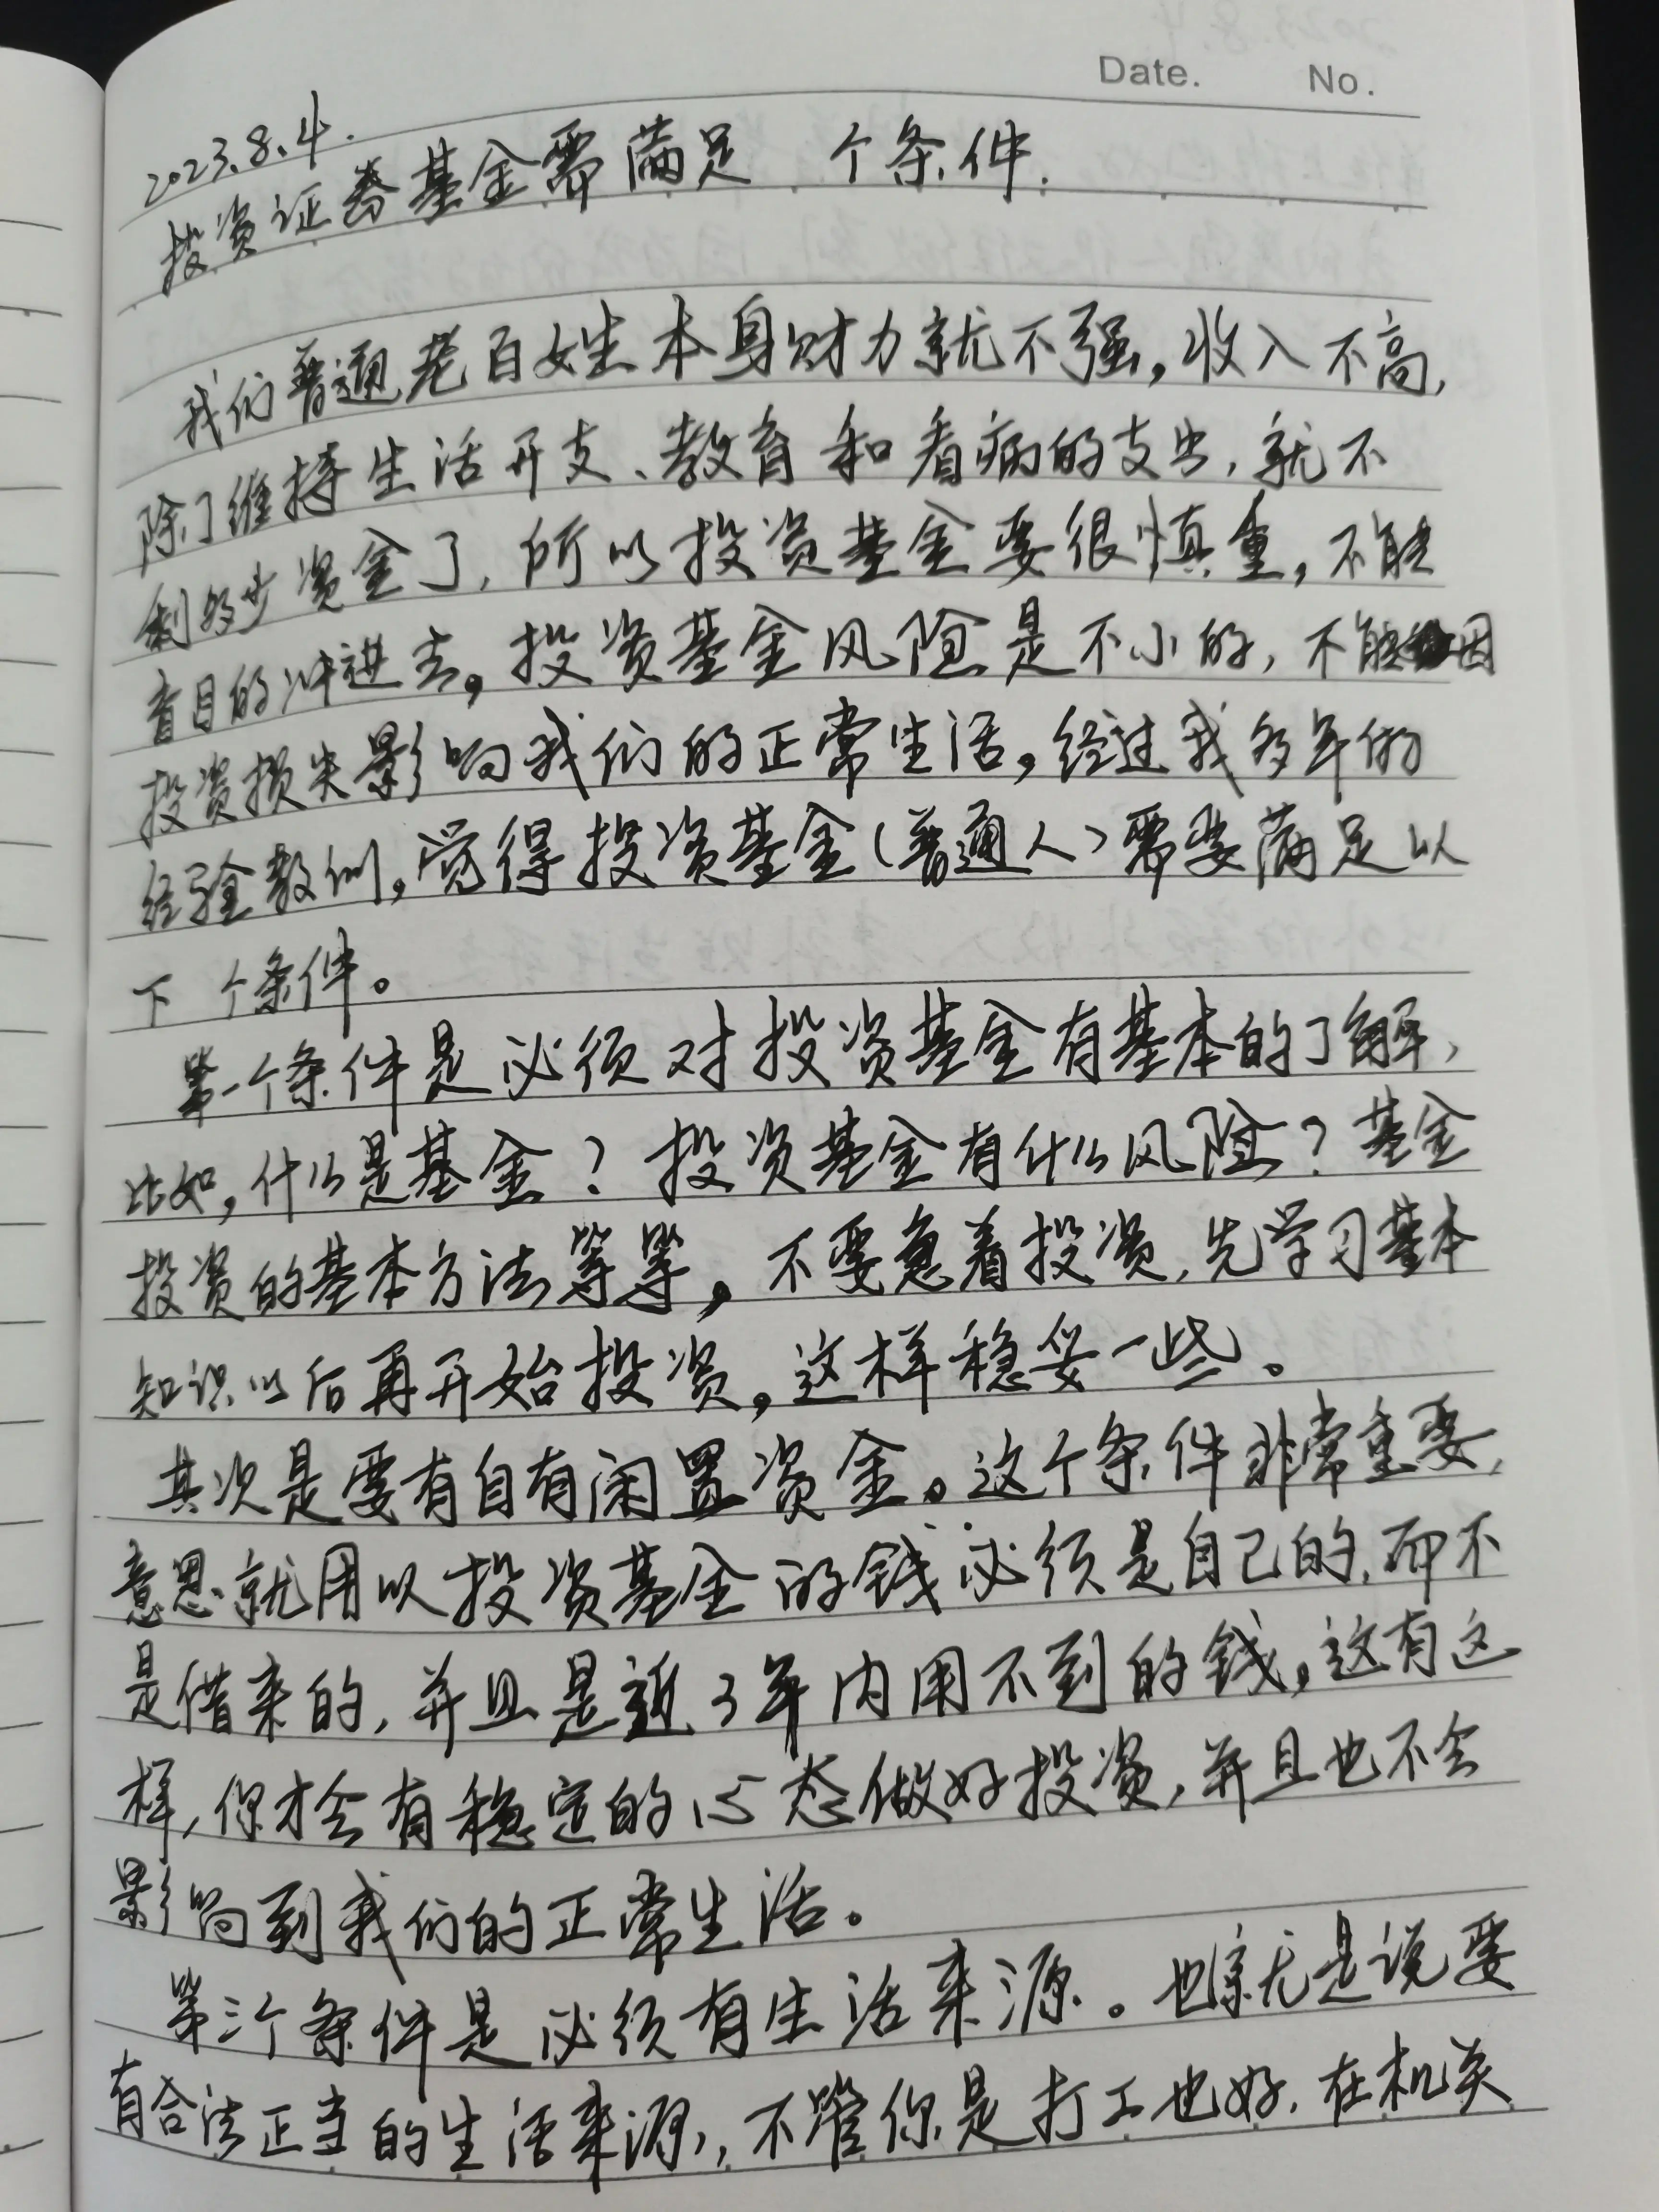 Date. No.
2023.8.4.
投资证券基金需满足 个条件.
我们普通老百姓本身财力就不强，收入不高，
除了维持生活开支、教育和看病的支出，就不
剩多少资金了，所以投资基金要很慎重，不能
盲目的冲进去。投资基金风险是不小的，不能因
投资损失影响我们的正常生活。经过我多年的
经验教训，觉得投资基金（普通人）需要满足以
下 个条件。
第一个条件是必须对投资基金有基本的了解，
比如，什么是基金？投资基金有什么风险？基金
投资的基本方法等等，不要急着投资，先学习基本
知识以后再开始投资，这样稳妥一些。
其次是要有自有闲置资金。这个条件非常重要，
意思就用以投资基金的钱必须是自己的，而不
是借来的，并且是近3年内用不到的钱。这有这
样，你才会有稳定的心态做好投资，并且也不会
影响到我们的正常生活。
第三个条件是必须有生活来源。也就是说要
有合法正当的生活来源，不管你是打工也好，在机关